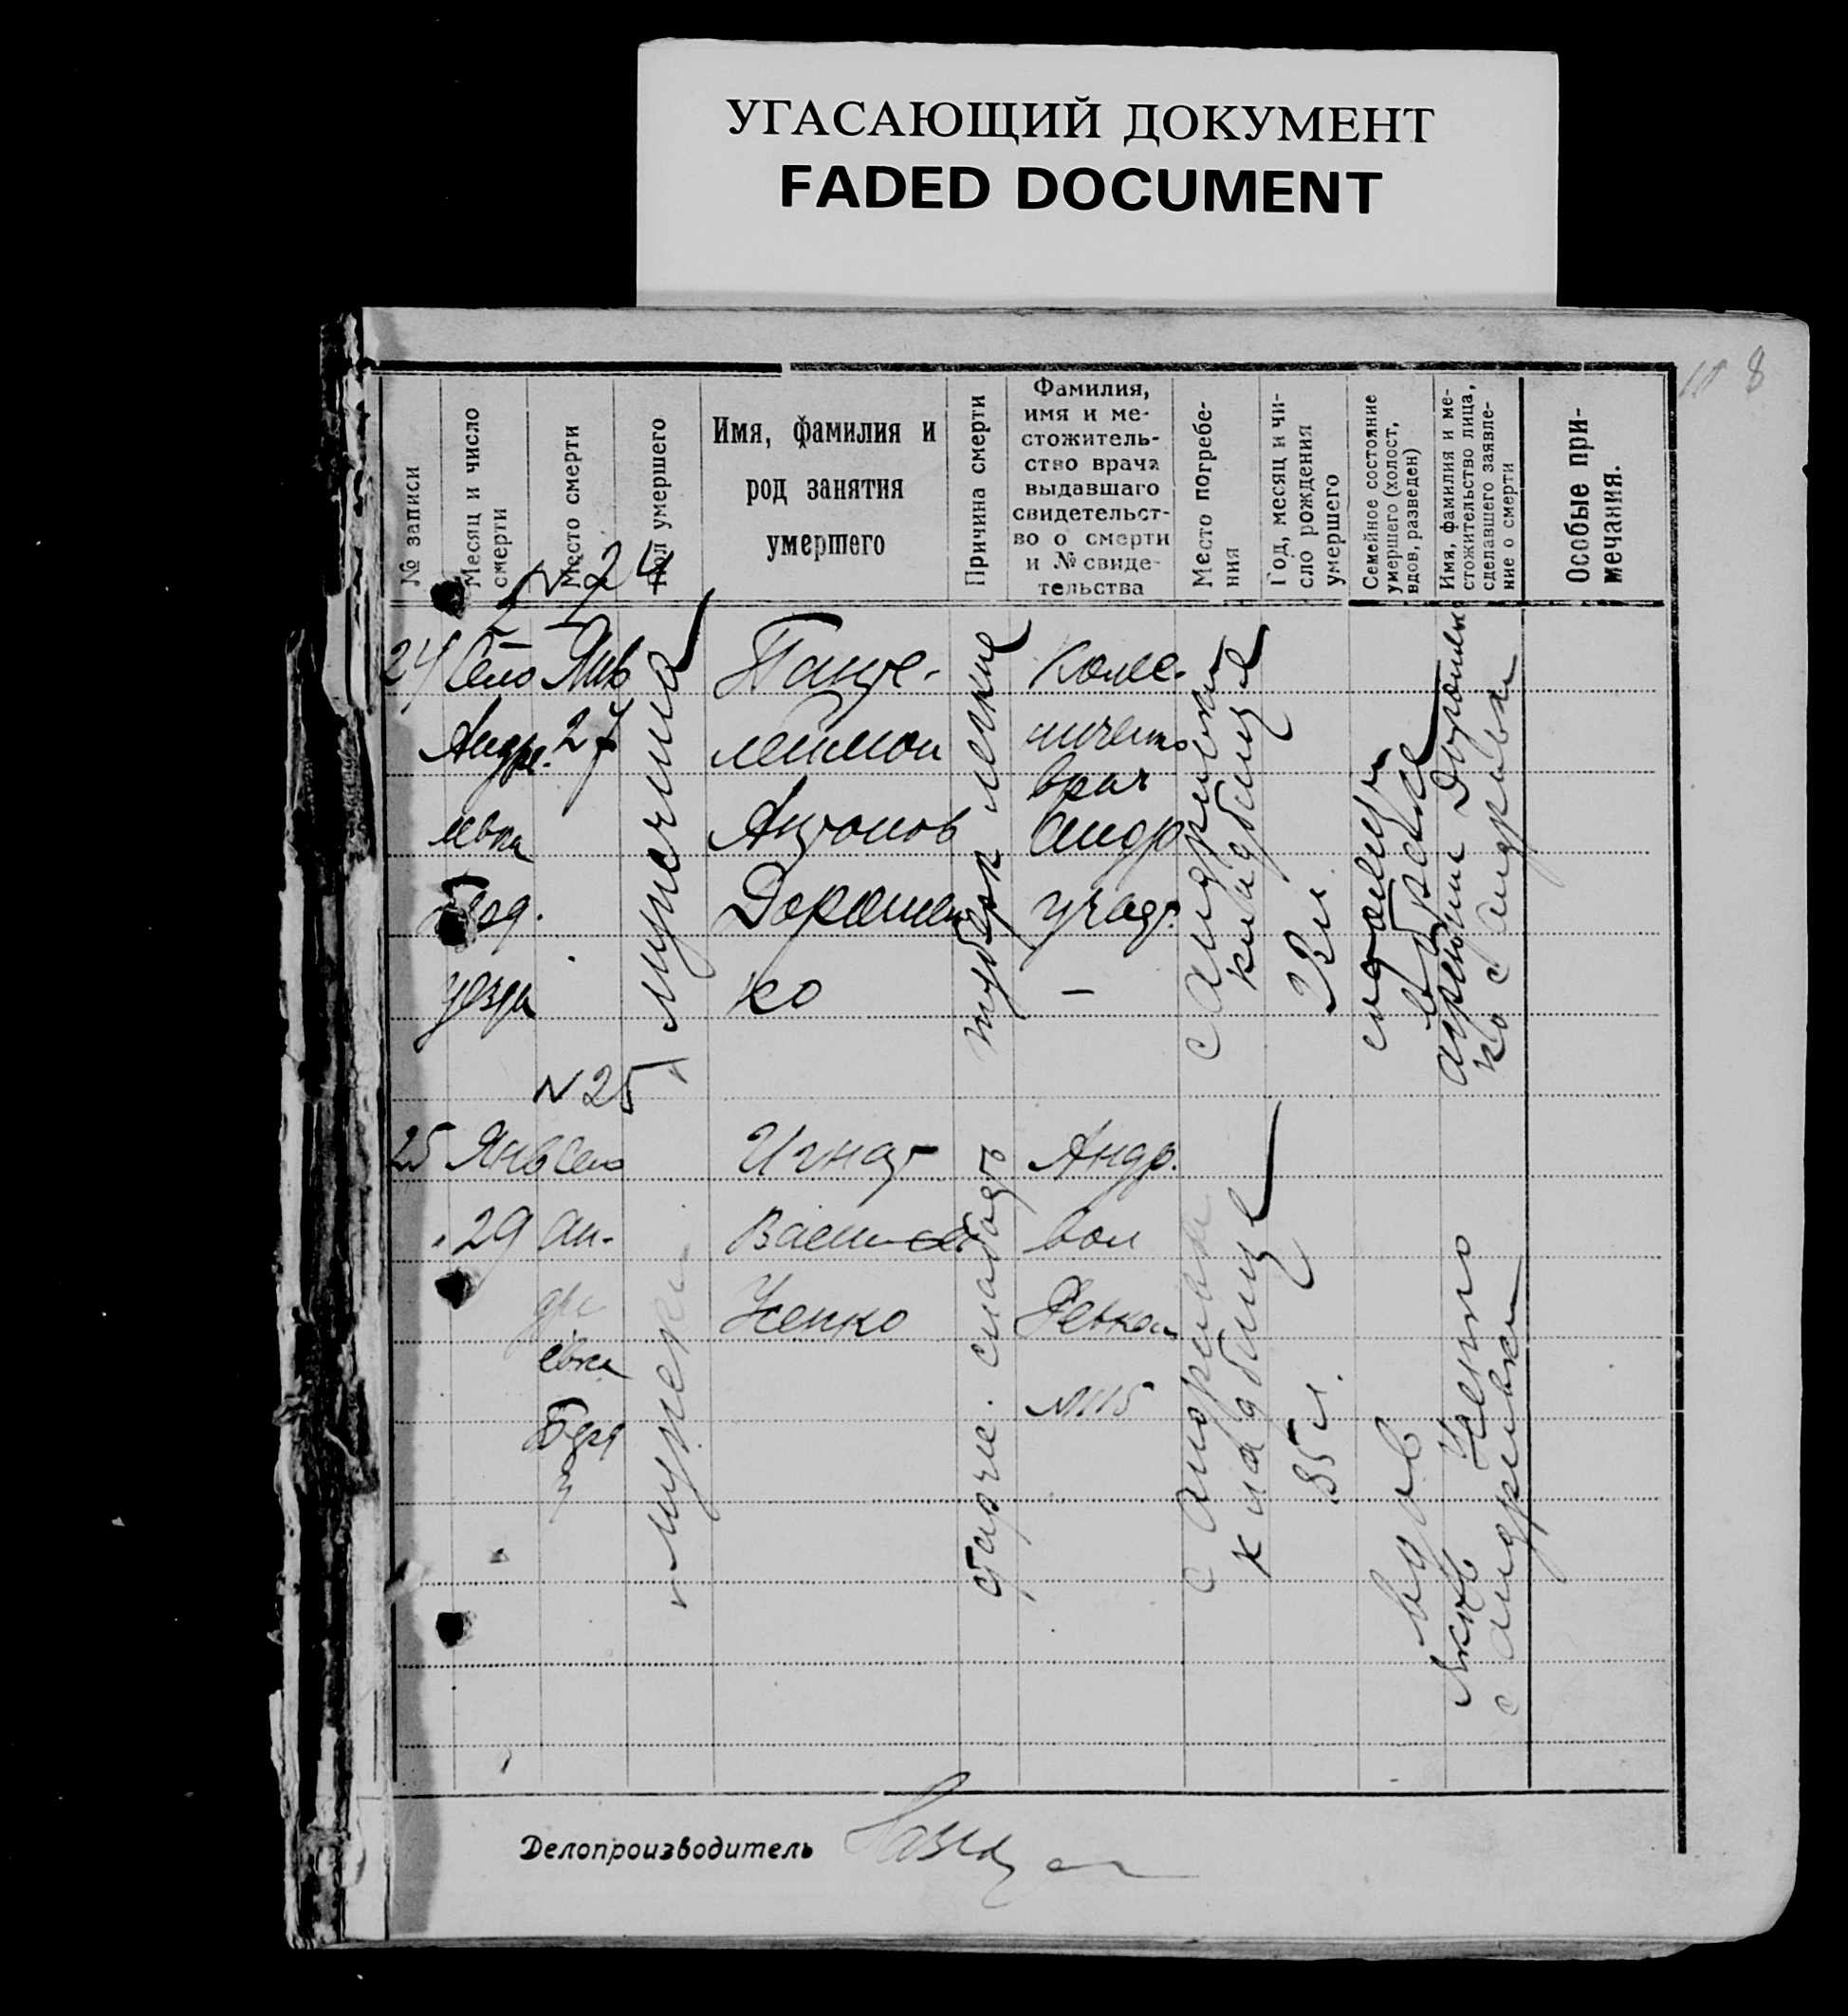 УГАСАЮЩИЙ ДОКУМЕНТ
FADED DOCUMENT
8
№ записи
Месяц и число
смерти
Место смерти
Пол умершего
Имя, фамилия и
род занятия
умершего
Причина смерти
Фамилия,
имя и ме-
стожитель-
ство врача
выдавшаго
свидетельст-
во о смерти
и № свиде-
тельства
Место погребе-
ния
Год, месяц и чи-
сло рождения
умершего
Семейное состояние
умершего (холост,
вдов, разведен)
Имя, фамилия и ме-
стожительство лица,
сделавшего заявле-
ние о смерти
Особые при-
мечания.
N 24
24
Село
Андре-
евка
Берд.
уезда
Янв
27
мужчина
Панте-
леймон
Антонов
Дорошен
ко
туберк легкие
врач
Андр.
участ.
—
с Андреевка
кладбище
в браке
Дорошен
ко с Андреевка
N 25
25
Янв
29
Село
Ан-
дре
евка
Берд
у
мужск
Игнат
Усенко
старче. слабость
Андр.
вол
Ревком
N 115
с Андреевка
кладбище
85 л.
вдов
Яков Усенко
с Андреевка
Делопроизводитель